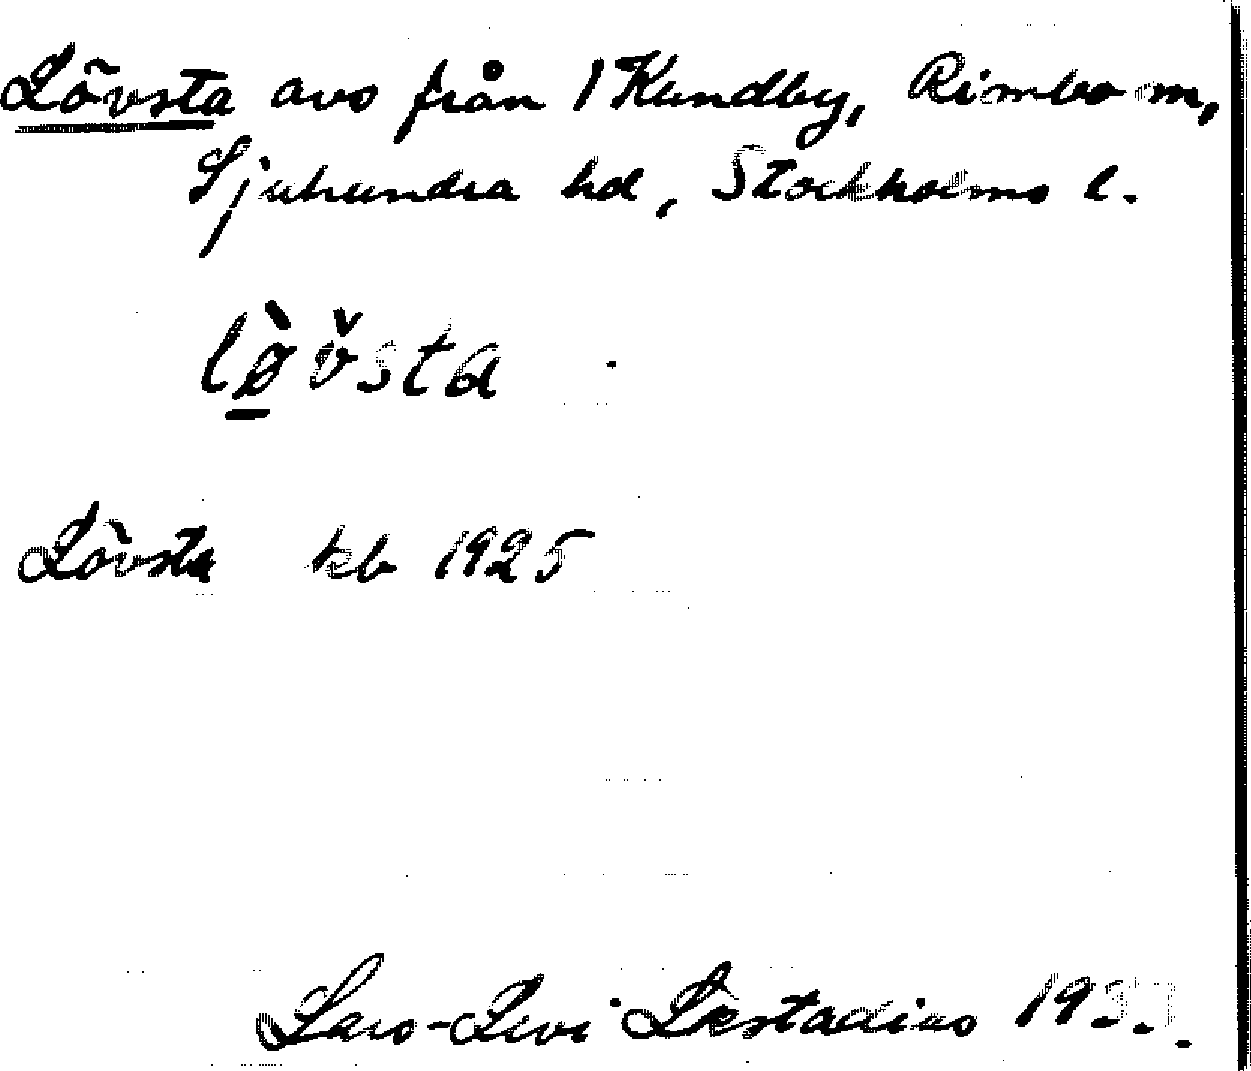 Lövsta avs från 1 Kundby, Rimbo sn,
Sjuhundra hd, Stockholms l.
lø̀v̌sta
Lövsta kb 1925
Lars-Levi Læstadius